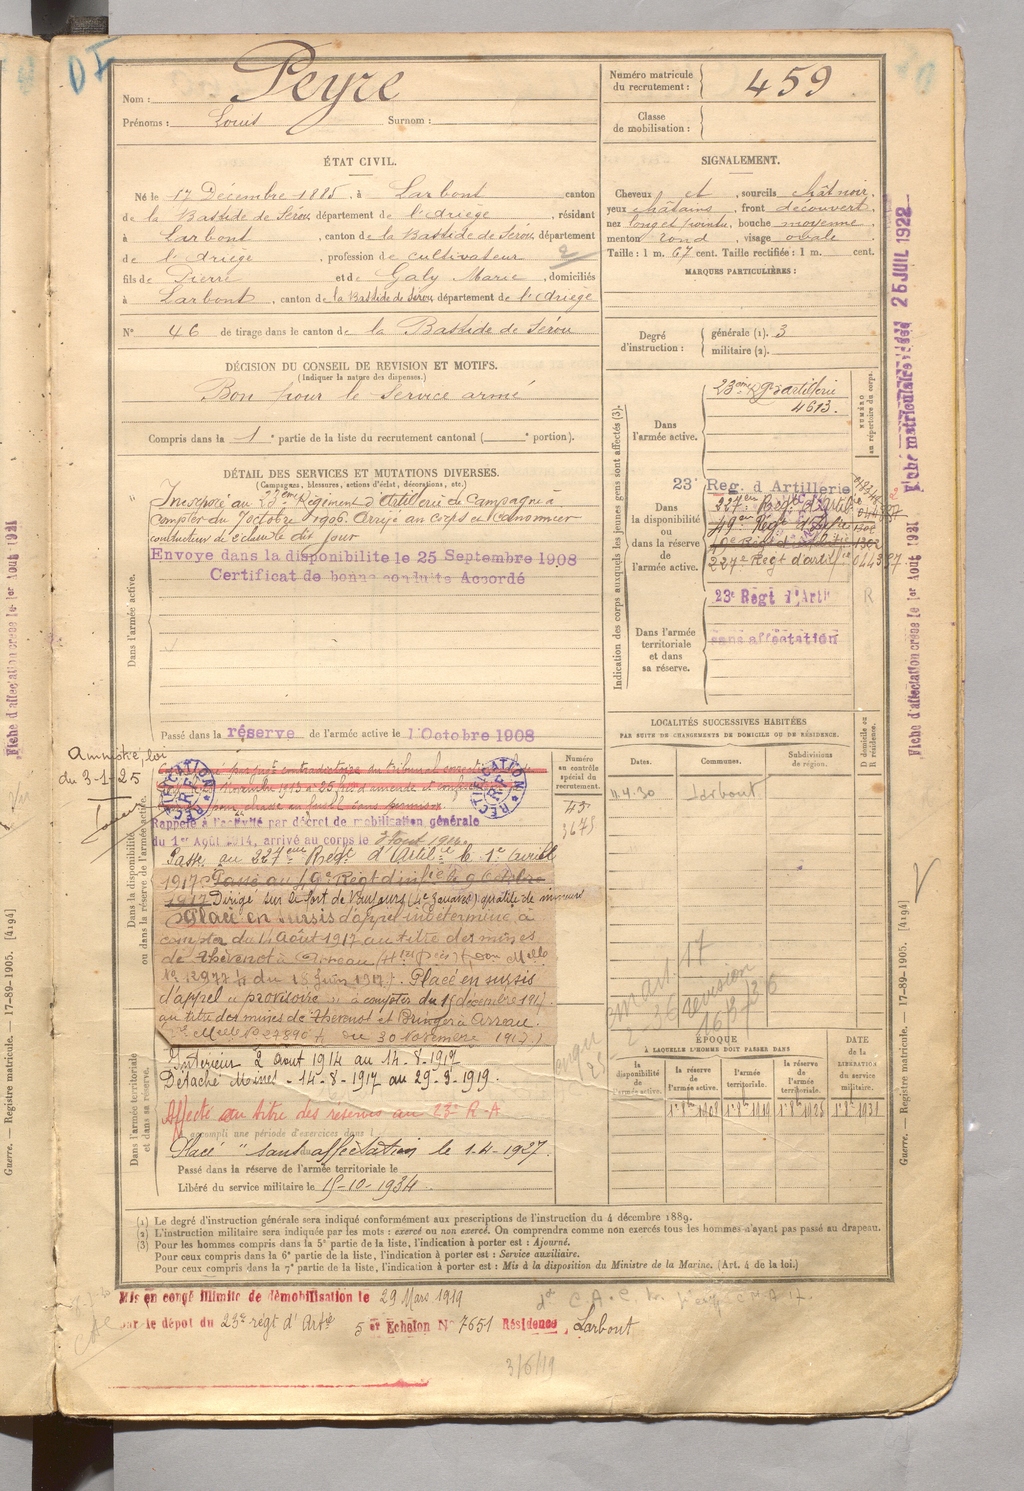 Nom : Peyre
Prénoms : Louis Surnom :
Numéro matricule du recrutement : 459
Classe de mobilisation :
ÉTAT CIVIL.
Né le 17 Décembre 1885, à Larbont canton
de la Bastide de Sérou, département de l'Ariège, résidant
à Larbont, canton de la Bastide de Sérou, département
de l'Ariège, profession de cultivateur
fils de Pierre et de Galy Marie, domiciliés
à Larbont, canton de la Bastide de Sérou, département de l'Ariège
N° 46 de tirage dans le canton de la Bastide de Sérou
SIGNALEMENT.
Cheveux et sourcils chât noir.
yeux châtains, front découvert
nez long et pointu, bouche moyenne
menton rond, visage ovale
Taille : 1 m. 67 cent. Taille rectifiée : 1 m. cent.
MARQUES PARTICULIÈRES :
Degré d'instruction : générale (1). 3
militaire (2).
DÉCISION DU CONSEIL DE REVISION ET MOTIFS.
(Indiquer la nature des dispenses.)
Bon pour le Service armé
Compris dans la 1e partie de la liste du recrutement cantonal ( e portion).
DÉTAIL DES SERVICES ET MUTATIONS DIVERSES.
(Campagnes, blessures, actions d'éclat, décorations, etc.)
Dans l'armée active.
Incorporé au 23ème Régiment d'Artillerie de Campagne à
compter du 7 octobre 1906. Arrivé au corps et canonnier
conducteur de 2e classe dit jour
Envoye dans la disponibilite le 25 Septembre 1908
Certificat de bonne conduite Accordé
Passé dans la réserve de l'armée active le 1 Octobre 1908
Amnistie, loi
du 3-1-25
Dans la disponibilité ou dans la réserve de l'armée active.
RECTIFICATION R.F.
RECTIFICATION R.F.
Rappelé à l'activité par décret de mobilisation générale
du 1er Août 1914, arrivé au corps le 3 Août 1914.
Passé au 227ème Régt d'Artie le 1er Avril
1917. Passé au 49e Régt d'infie le 9 Octobre
1917 Dirigé sur le fort de Vaujours (4e Zouaves) qualité de mineur
Placé en sursis d'appel indéterminé à
compter du 14 Août 1917 au titre des mines
de Thévenot à
No 12977 du 15 Juin 1917. Placé en sursis
d'appel "provisoire" à compter du 15 décembre 1917
au titre des mines de Thévenot et Bringer à Arreau.
No 27896 du 30 Novembre 1917.)
Intérieur 2 aout 1914 au 14-8-1917
Détaché Mines - 14-8-1917 au 29-3-1919.
Dans l'armée territoriale et dans sa réserve.
Affecté au titre des réserves au 23e R-A
accompli une période d'exercices dans l
Placé "sans affectation" le 1-4-1927.
Passé dans la réserve de l'armée territoriale le
Libéré du service militaire le 15-10-1934
Indication des corps auxquels les jeunes gens sont affectés (3).
NUMÉRO au répertoire du corps.
Dans l'armée active.
23ème Rgt d'artillerie
4613.
Dans la disponibilité ou dans la réserve de l'armée active.
23e Reg. d Artillerie
227e Régt d'artil
49e Regt d'Infie 1302
49e Régt d'infie 1302
227e Régt d'artie 044387
23e Régt d'Artie R
Dans l'armée territoriale et dans sa réserve.
sans affectation
LOCALITÉS SUCCESSIVES HABITÉES
PAR SUITE DE CHANGEMENTS DE DOMICILE OU DE RÉSIDENCE.
Dates. Communes. Subdivisions de région.
D domicile ou R résidence.
11.4.30 Larbont.
Numéro au contrôle spécial du recrutement.
43
3675
ÉPOQUE
À LAQUELLE L'HOMME DOIT PASSER DANS
la disponibilité de l'armée active. la réserve de l'armée active. l'armée territoriale. la réserve de l'armée territoriale.
DATE de la LIBÉRATION du service militaire.
1er 8bre 1908 1er 8bre 1919 1er 8bre 1925 1er 8bre 1931
(1) Le degré d'instruction générale sera indiqué conformément aux prescriptions de l'instruction du 4 décembre 1889.
(2) L'instruction militaire sera indiquée par les mots : exercé ou non exercé. On comprendra comme non exercés tous les hommes n'ayant pas passé au drapeau.
(3) Pour les hommes compris dans la 5e partie de la liste, l'indication à porter est : Ajourné.
Pour ceux compris dans la 6e partie de la liste, l'indication à porter est : Service auxiliaire.
Pour ceux compris dans la 7e partie de la liste, l'indication à porter est : Mis à la disposition du Ministre de la Marine. (Art. 4 de la loi.)
Mis en congé illimité de démobilisation le 29 Mars 1919
par le dépot du 23e régt d'Artie 5er Echelon N° 7651 Résidence, Larbont
3/6/19
Guerre. — Registre matricule. — 17-89-1905. [4194]
Guerre. — Registre matricule. — 17-89-1905. [4194]
Fiche d'affectation créée le 1er Août 1921
Fiche d'affectation créée le 1er Août 1921
Fiche matriculaire 25 JUIL 1922